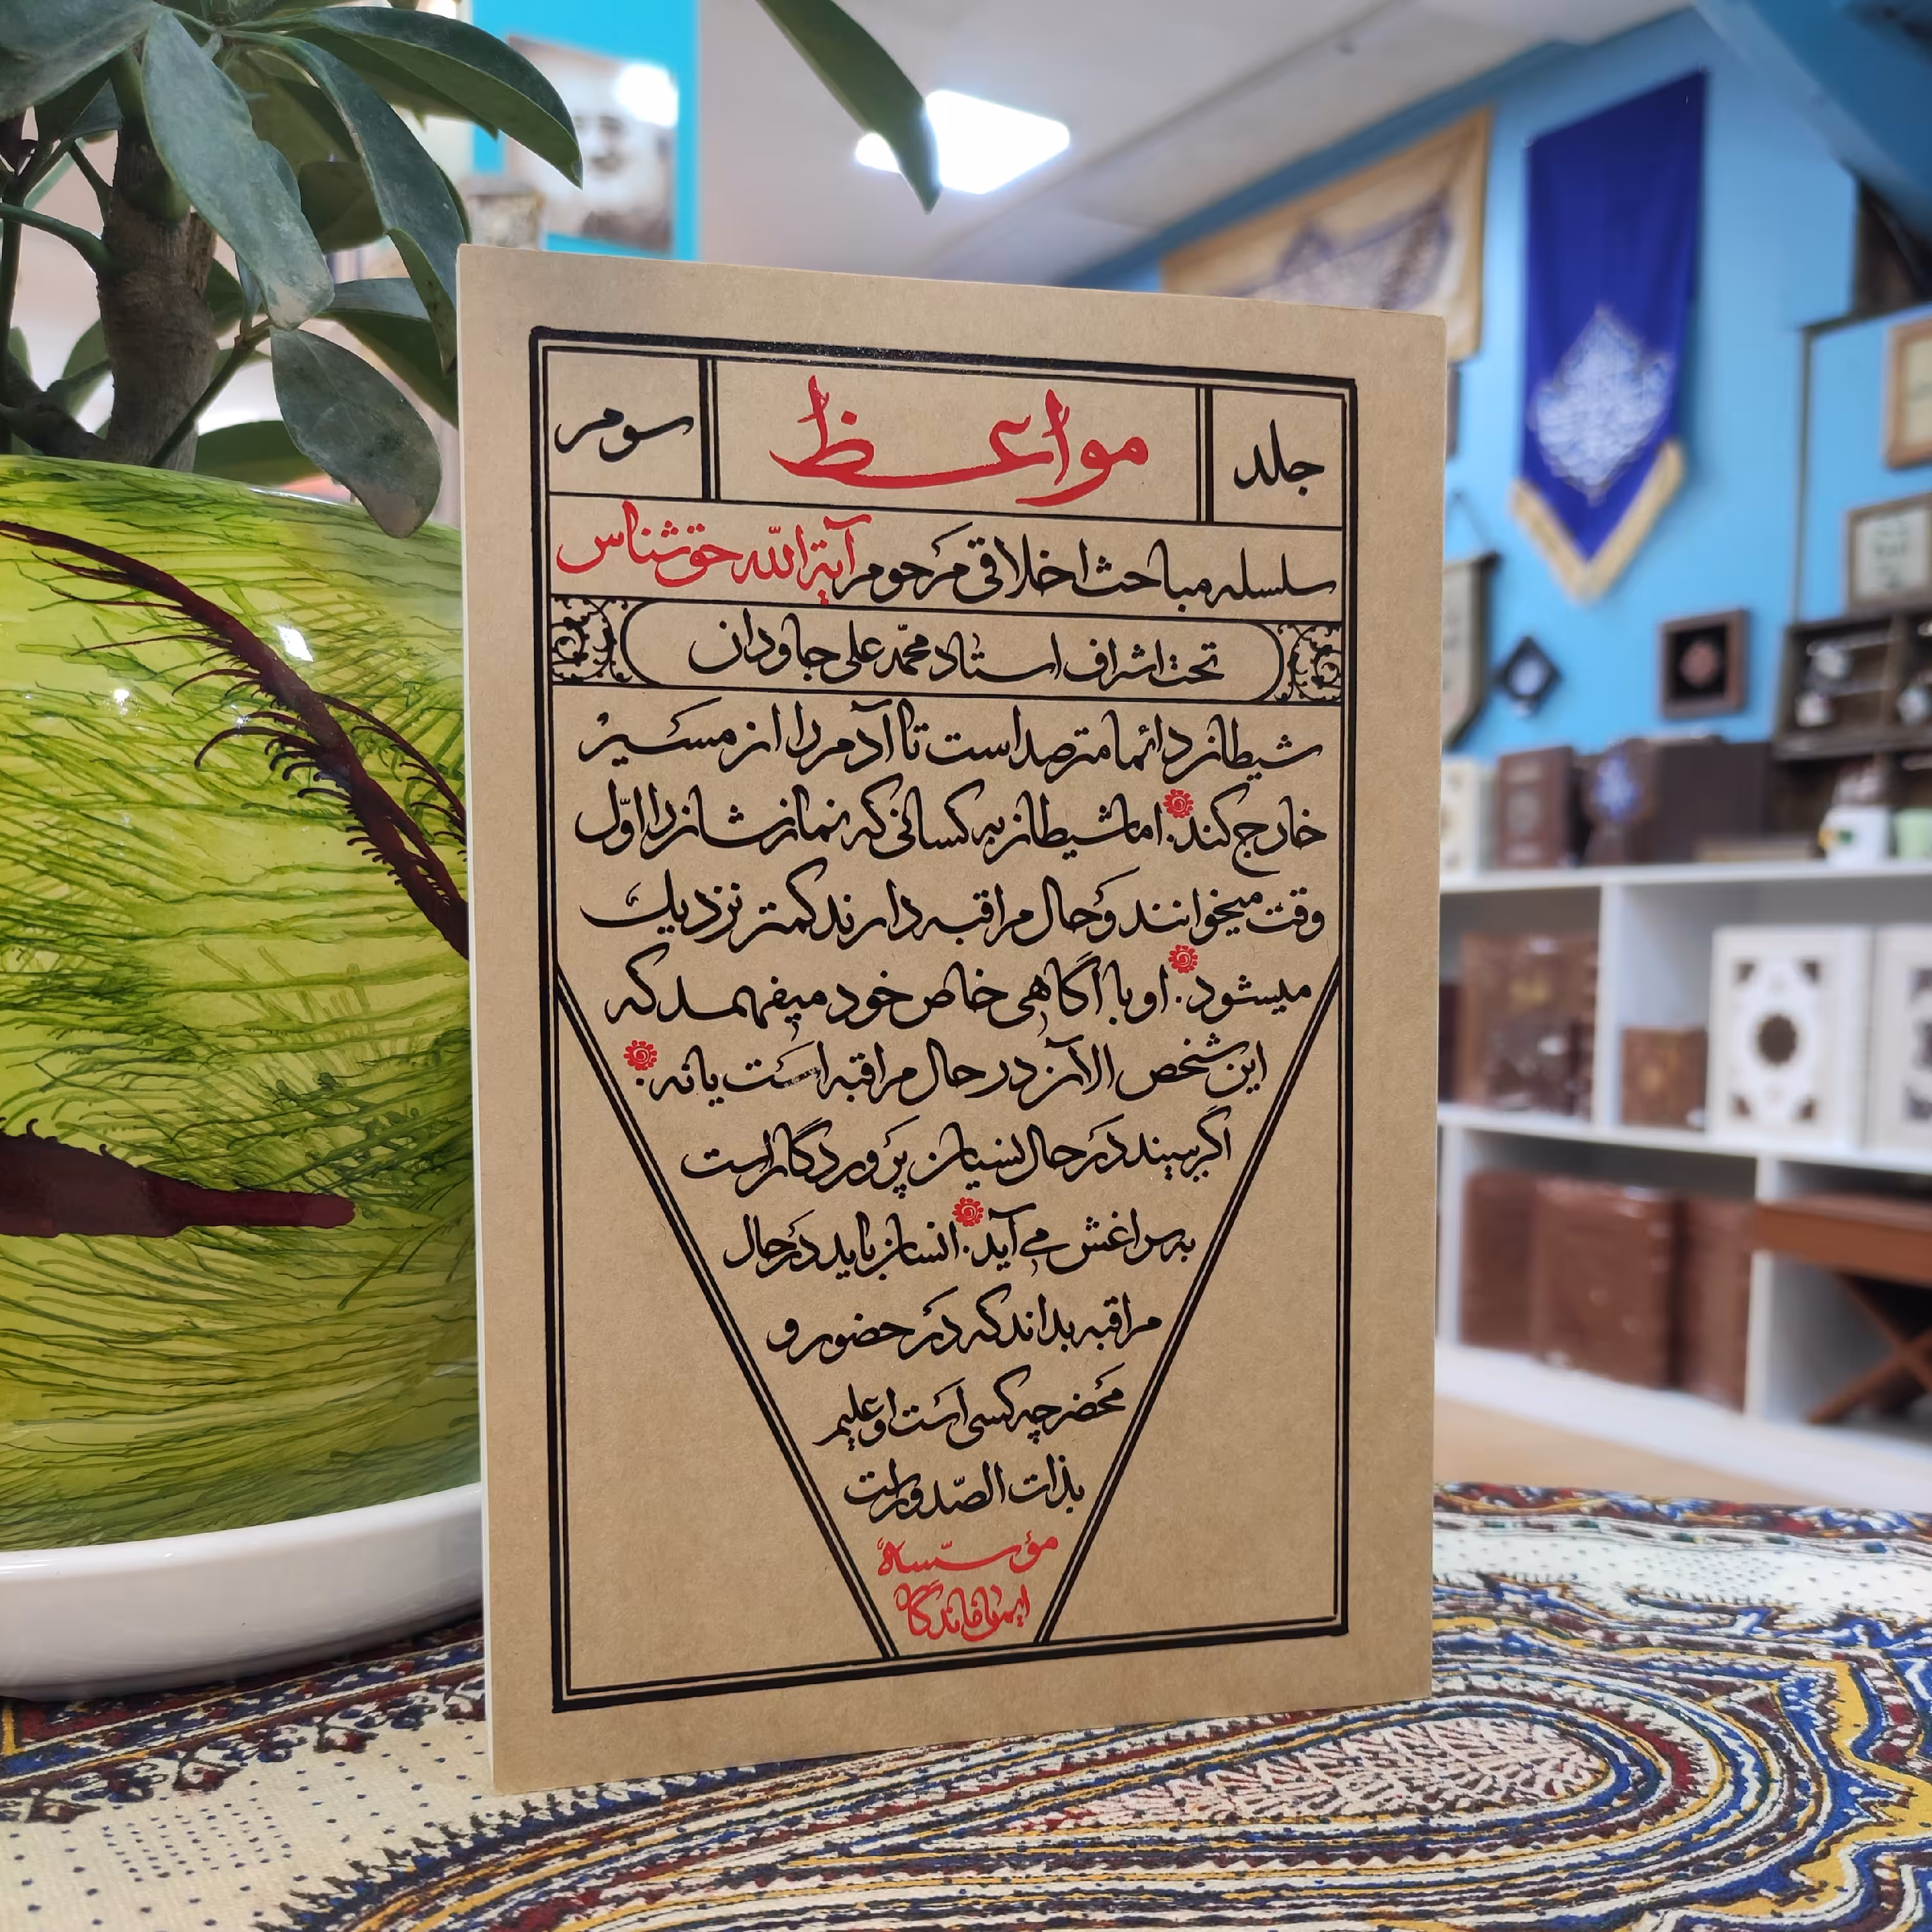 جلد مواعظ سوم
سلسله مباحث اخلاقی مرحوم آیة الله حق شناس
تحت اشراف استاد محمّد علی جاودان
شیطان دائما مترصد است تا آدم را از مسیر
خارج کند. اما شیطان به کسانی که نمازشان را اوّل
وقت میخوانند و حال مراقبه دارند کمتر نزدیک
میشود. او با آگاهی خاص خود میفهمد که
این شخص الآن در حال مراقبه است یا نه.
اگر ببیند در حال نسیان پروردگار است
به سراغش می آید. انسان باید در حال
مراقبه بداند که در حضور و
محضر چه کسی است او علیم
بذات الصّدور است
مؤسّسه
ایمان ماندگار